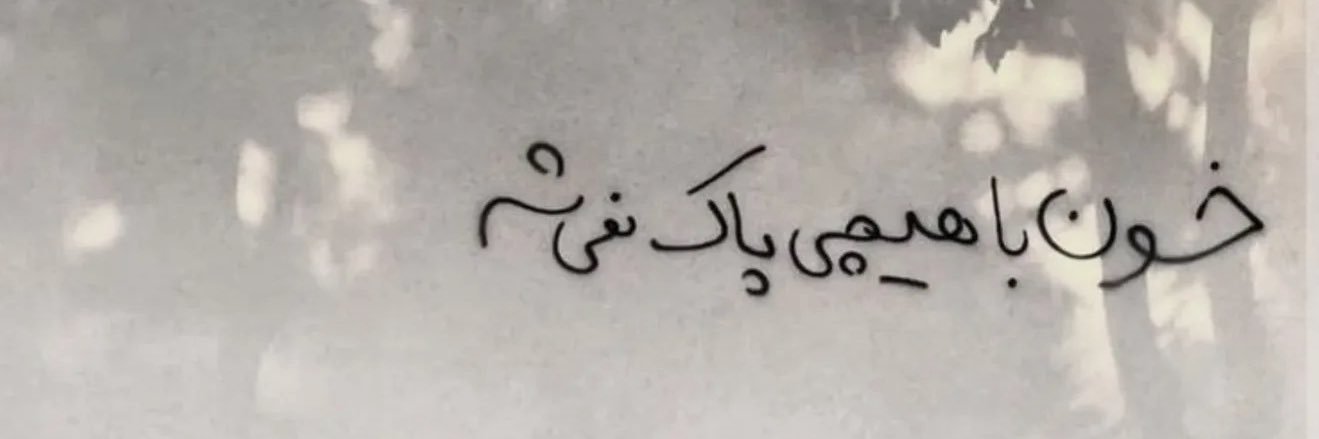 خون با هیچی پاک نمی‌شه